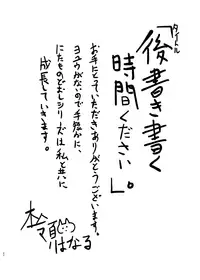 タイトル
「後書き書く
時間ください」。
お手にとっていただきありがとうございます。
ヨユウがないので手短かに
にたものどおしシリーズは私と共に
成長していきます。
はなる